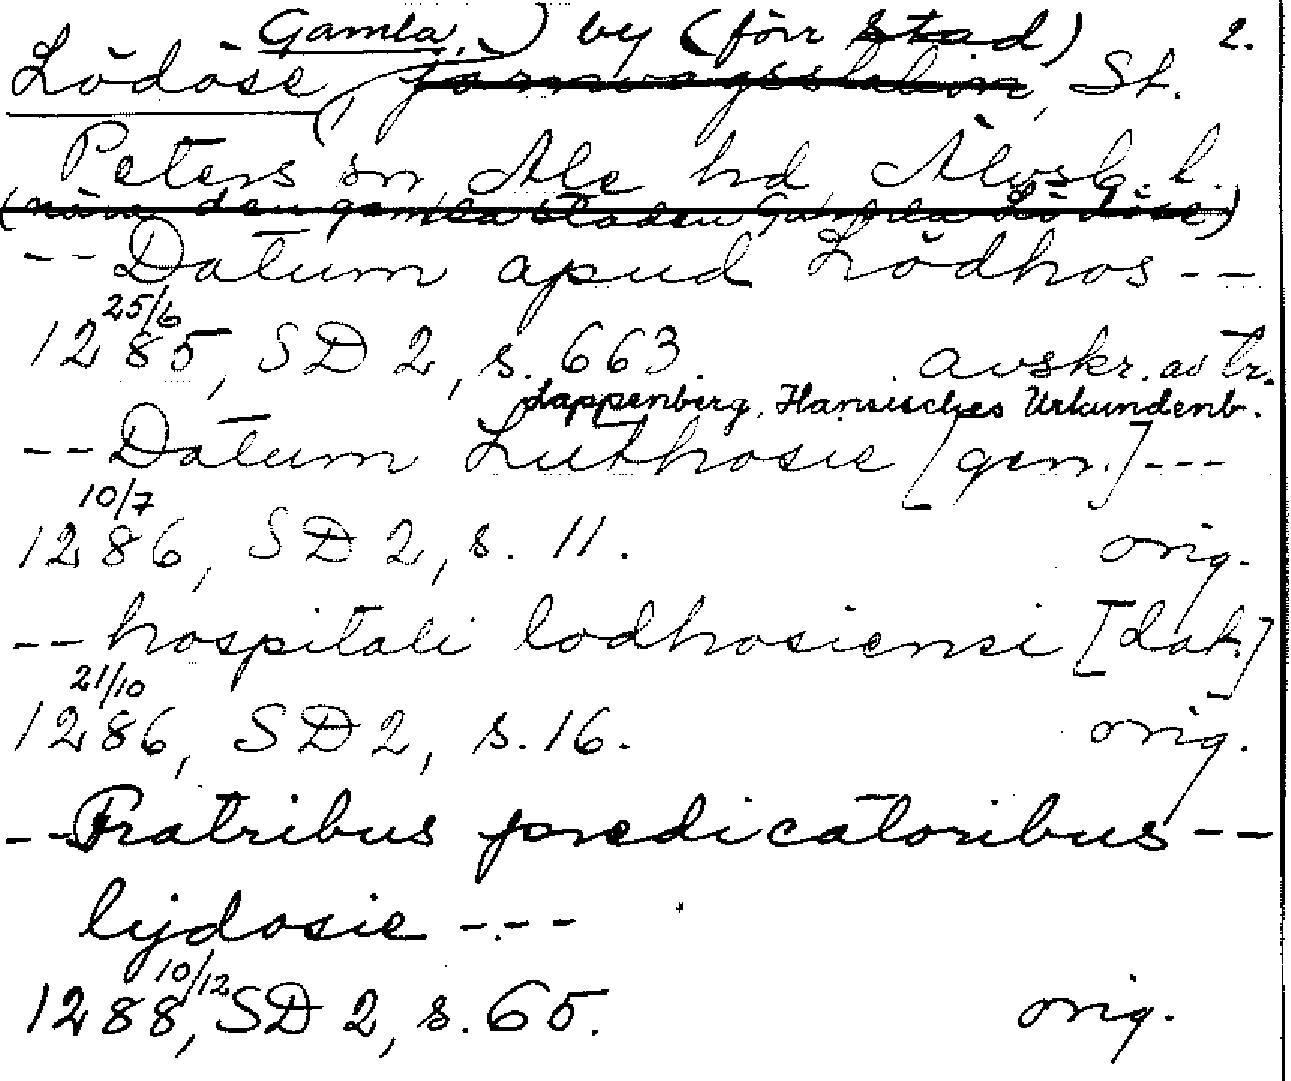 Gamla,) by (förr stad) 2.
Lödöse, (järnvägsstation, St.
Peters sn, Ale hd, Älvsb. l.
(nära den gamla staden Gamla Lödöse)
-- Datum apud Lödhos --
25/6
1285, SD 2, s. 663. avskr. av tr.
Lappenberg, Hansisches Urkundenb.
-- Datum Luthosie [gen.] ---
10/7
1286, SD 2, s. 11. orig.
-- hospitali lodhosiensi [dat.]
21/10
1286, SD 2, s. 16. orig.
-- Fratribus predicatoribus --
lijdosie ---
10/12
1288, SD 2, s. 65. orig.